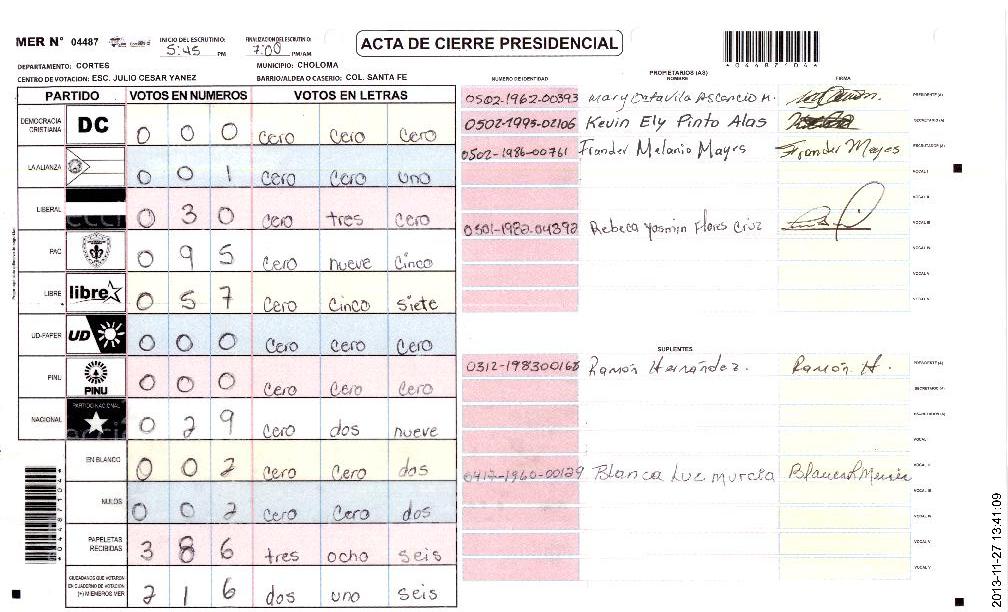 MER N° 04487 INICIO DEL ESCRUTINIO: 5:45 PM FINALIZACION ESCRUTINIO: 7:00 PM/AM ACTA DE CIERRE PRESIDENCIAL
*04487104*
DEPARTAMENTO: CORTES MUNICIPIO: CHOLOMA
CENTRO DE VOTACION: ESC. JULIO CESAR YANEZ BARRIO/ALDEA O CASERIO: COL. SANTA FE
PARTIDO VOTOS EN NUMEROS VOTOS EN LETRAS
DEMOCRACIA CRISTIANA DC 0 0 0 Cero Cero Cero
LA ALIANZA 0 0 1 Cero Cero uno
LIBERAL 0 3 0 Cero tres Cero
PAC 0 9 5 Cero nueve Cinco
LIBRE libre 0 5 7 Cero Cinco siete
UD-FAPER UD 0 0 0 Cero Cero Cero
PINU PINU 0 0 0 Cero Cero Cero
NACIONAL PARTIDO NACIONAL 0 2 9 Cero dos nueve
EN BLANCO 0 0 2 Cero Cero dos
NULOS 0 0 2 Cero Cero dos
PAPELETAS RECIBIDAS 3 8 6 tres ocho seis
CIUDADANOS QUE VOTARON EN CUADERNO DE VOTACION (+) MIEMBROS MER 2 1 6 dos uno seis
*04487104*
PROPIETARIOS (AS)
NUMERO DE IDENTIDAD NOMBRE FIRMA
0502-1962-00393 PRESIDENTE (A)
0502-1995-02106 Kevin Ely Pinto Alas SECRETARIO (A)
0502-1986-00761 Frander Melanio Mayes Frander Mayes ESCRUTADOR (A)
VOCAL I
VOCAL II
0501-1982-04392 Rebeca Yasmin Flores Cruz VOCAL III
VOCAL IV
VOCAL V
VOCAL VI
SUPLENTES
0312-198300168 Ramón Hernández. Ramón. H. PRESIDENTE (A)
SECRETARIO (A)
ESCRUTADOR (A)
VOCAL I
0412-1960-00129 Blanca Luz Murcia VOCAL II
VOCAL III
VOCAL IV
VOCAL V
VOCAL VI
2013-11-27 13:41:09